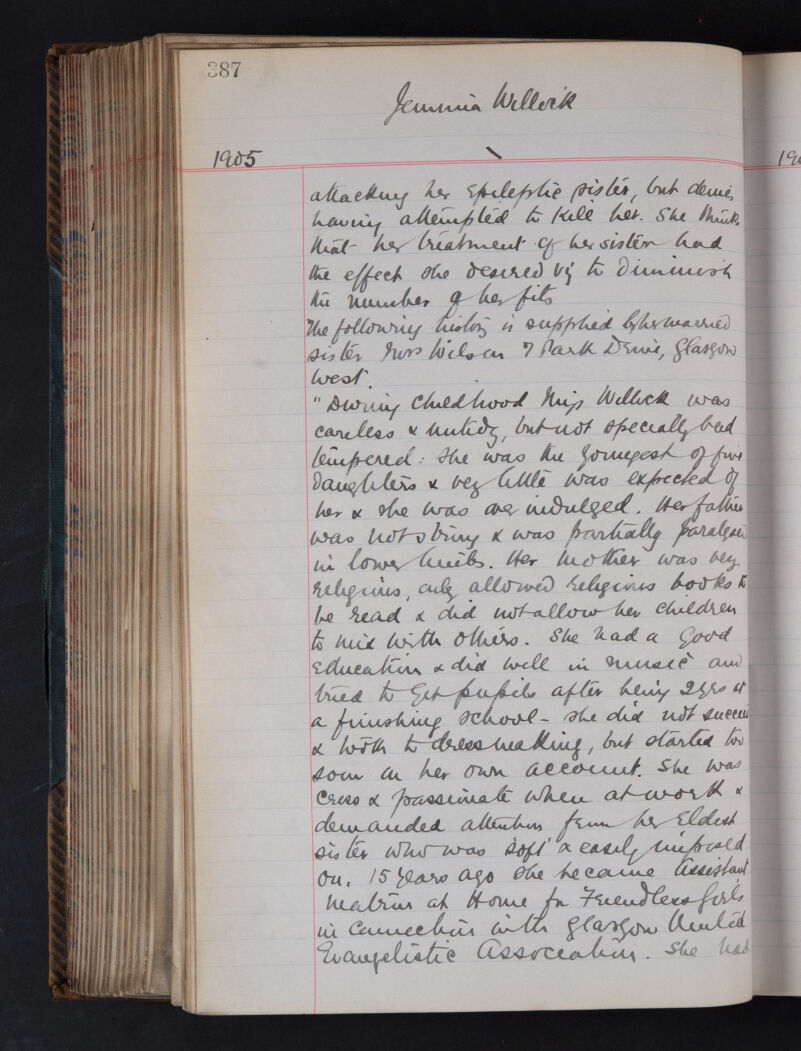 387
Jemima Wellock
1905
attacking her Epileptic sister, but denies
having attempted to kill her. She thinks
that her treatment of her sister had
the effect she desired viz to Diminish
the number of her fits
The following history is supplied by her married
sister Mrs Wilson 7 Park Drive, Glasgow
West.
"During childhood Miss Wellock was
careless & untidy, but not specially bad
tempered: she was the youngest of five
daughters & very little was expected of
her & she was over indulged. Her father
was not strong & was partially paralysed
in lower limbs. Her mother was very
religious, only allowed religious books to
be read & did not allow her children
to mix with others. She had a good
Education & did well in music and
tried to get pupils after being 2 yrs at
a finishing school - she did not succeed
& took to dressmaking, but started too
soon on her own account. She was
cross & passionate when at work &
demanded attention from her Eldest
sister who was soft & easily imposed
on. 15 years ago she became Assistant
Matron at Home for Friendless Girls
in connection with Glasgow United
Evangelistic Association. She had